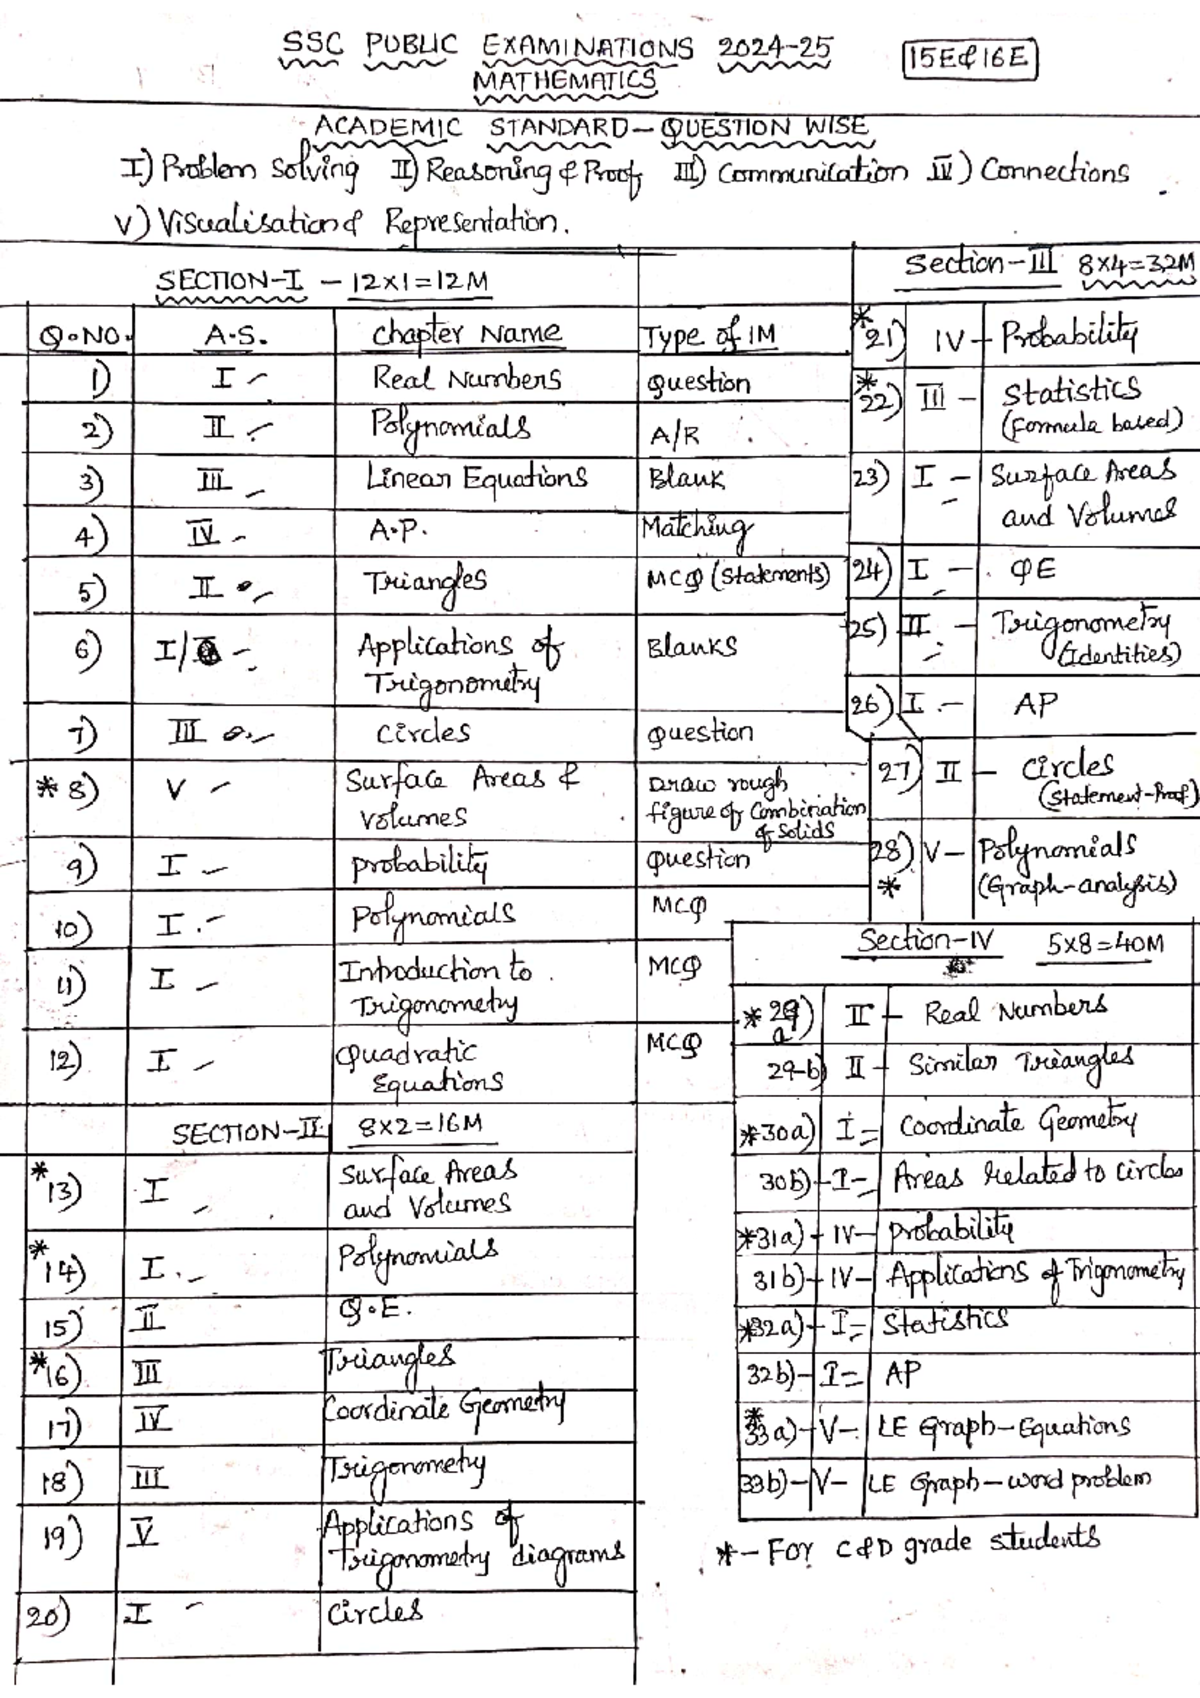 SSC PUBLIC EXAMINATIONS 2024-25
15E&16E
MATHEMATICS
ACADEMIC STANDARD - QUESTION WISE
I) Problem Solving II) Reasoning & Proof III) Communication IV) Connections
V) Visualisation & Representation.
SECTION-I - 12×1=12M
Q.NO. A.S. Chapter Name Type of 1M
1) I - Real Numbers Question
2) II - Polynomials A/R
3) III - Linear Equations Blank
4) IV - A.P. Matching
5) II - Triangles MCQ (Statements)
6) I/ - Applications of Blanks
Trigonometry
7) III - Circles Question
*8) V - Surface Areas & Draw rough
volumes figure of Combination
of Solids
9) I - probability Question
10) I - Polynomials MCQ
11) I - Introduction to MCQ
Trigonometry
12) I - Quadratic MCQ
Equations
SECTION-II 8×2=16M
*13) I - Surface Areas
and Volumes
*14) I - Polynomials
15) II Q.E.
*16) III Triangles
17) IV Coordinate Geometry
18) III Trigonometry
19) V Applications of
Trigonometry diagrams
20) I - Circles
Section-III 8×4=32M
*21) IV - Probability
*22) III - Statistics
(Formula based)
23) I - Surface Areas
and Volumes
24) I - QE
25) II - Trigonometry
(Identities)
26) I - AP
27) II - Circles
(Statement-Proof)
28) V - Polynomials
* (Graph-analysis)
Section-IV 5×8=40M
*29) II - Real Numbers
a
29-b) II - Similar Triangles
*30a) I - Coordinate Geometry
30b) - I - Areas related to circles
*31a) - IV - Probability
31b) - IV - Applications of Trigonometry
*32a) - I - Statistics
32b) - I - AP
*33a) - V - LE Graph-Equations
33b) - V - LE Graph-word problem
*- For C&D grade students